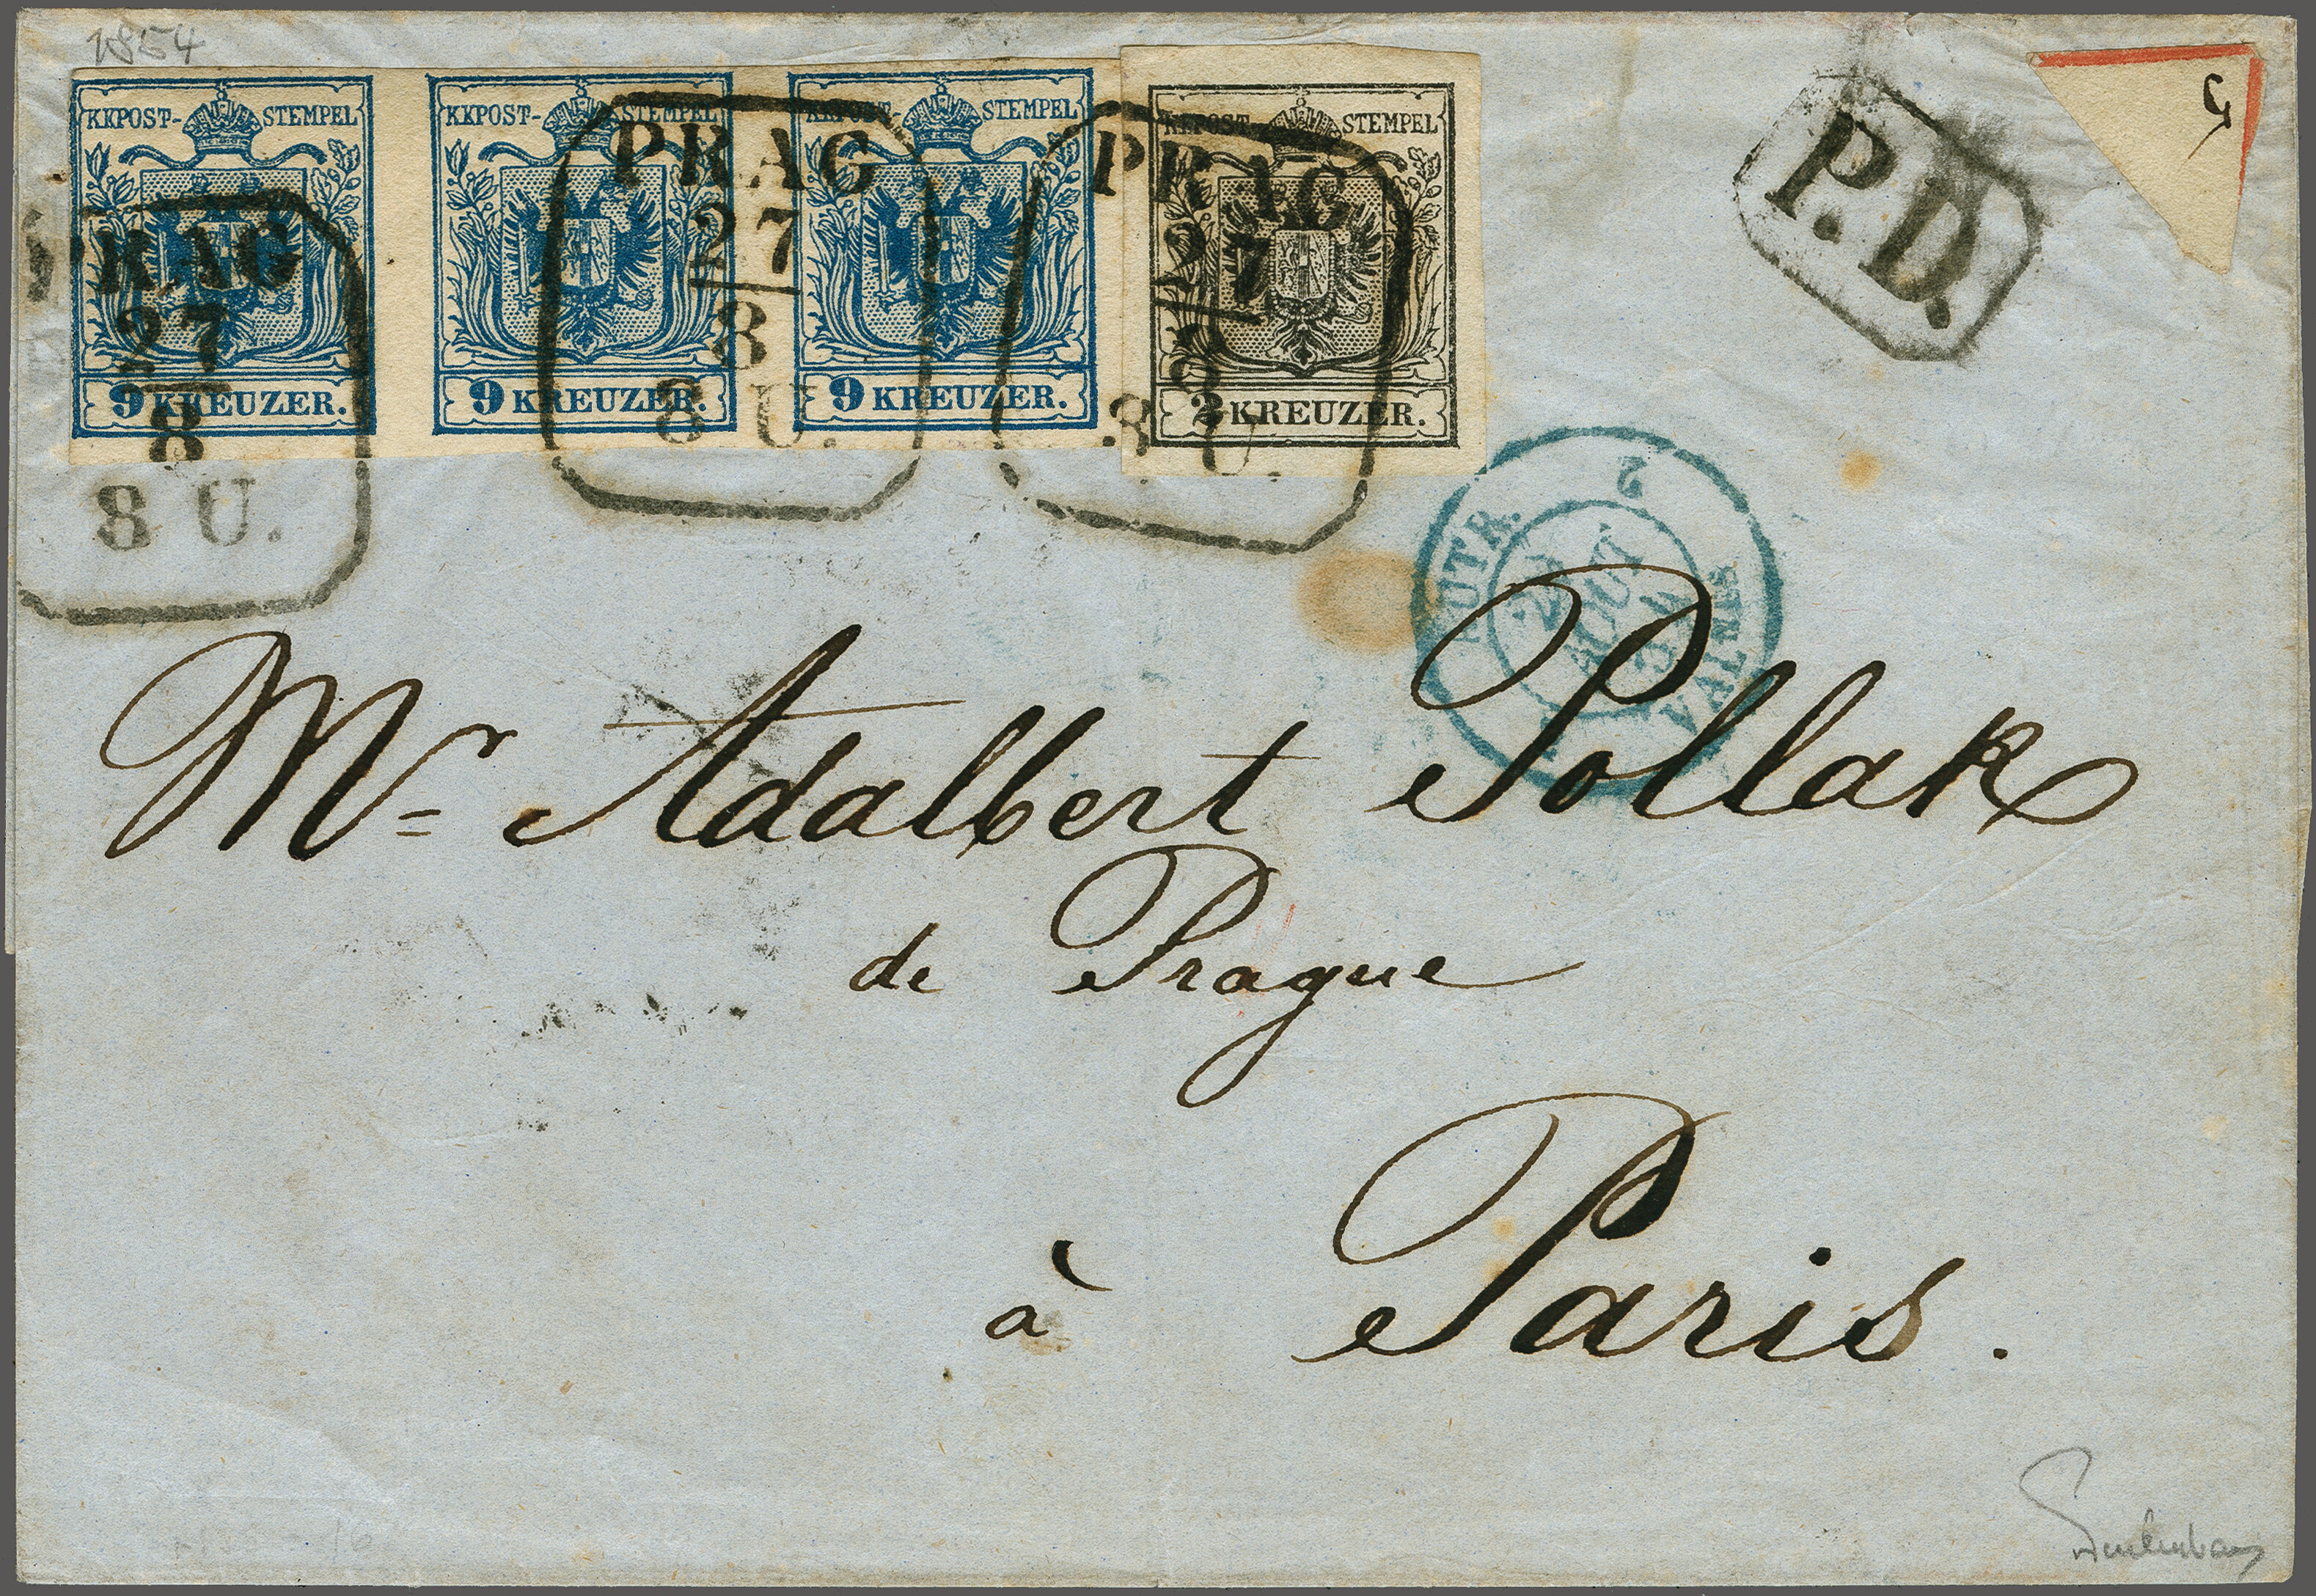 1854
KKPOST-STEMPEL
9 KREUZER.
KKPOST-STEMPEL
9 KREUZER.
KKPOST-STEMPEL
9 KREUZER.
KKPOST-STEMPEL
2 KREUZER.
PRAG
27
8
8 U.
PRAG
27
8
8 U.
PRAG
27
8
8 U.
P.D.
2
AUTR.
29
AOUT
54
VALNES
Mr Adalbert Pollak
de Prague
à Paris.